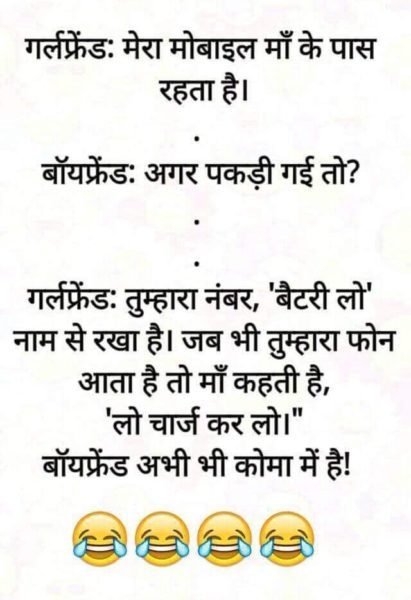 गर्लफ्रेंड: मेरा मोबाइल माँ के पास
रहता है।
.
बॉयफ्रेंड: अगर पकड़ी गई तो?
.
.
गर्लफ्रेंड: तुम्हारा नंबर, 'बैटरी लो'
नाम से रखा है। जब भी तुम्हारा फोन
आता है तो माँ कहती है,
'लो चार्ज कर लो।"
बॉयफ्रेंड अभी भी कोमा में है!
😂😂😂😂